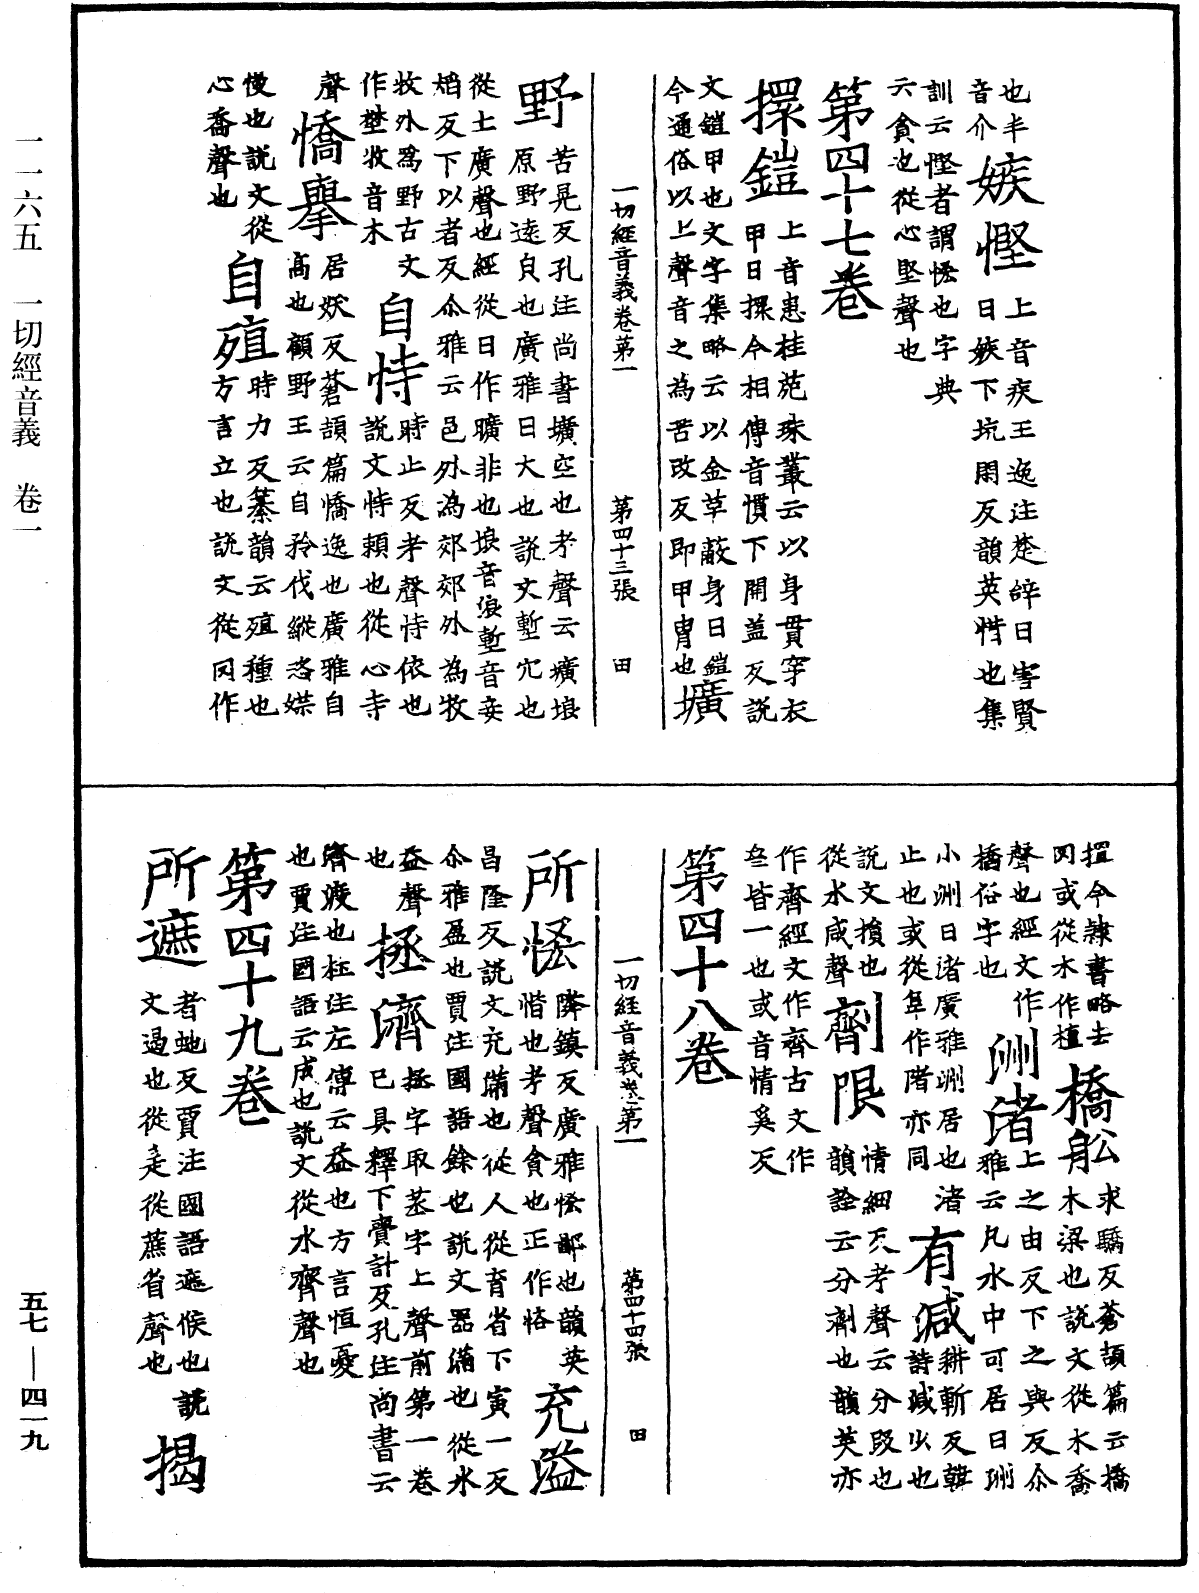 一一六五　一切經音義　卷一
也半
音介
嫉慳
上音疾王逸注楚辞曰害賢
曰嫉下坑閑反韻英惜也集
訓云慳者謂悋也字典
云貪也從心堅聲也
第四十七卷
擐鎧
上音患桂苑珠叢云以身貫穿衣
甲曰擐今相傳音慣下開盖反說
文鎧甲也文字集略云以金革蔽身曰鎧
今通俗以上聲音之為苦改反即甲胄也
壙
一切經音義卷第一　第四十三張　田
野
苦晃反孔注尚書壙空也考聲云壙埌
原野遠皃也廣雅曰大也說文塹穴也
從土廣聲也經從日作曠非也埌音浪塹音妾
焰反下以者反尒雅云邑外為郊郊外為牧
牧外為野古文
作埜牧音木
自恃
時止反考聲恃依也
說文恃賴也從心寺
聲
憍舉
居妖反蒼頡篇憍逸也廣雅自
高也顧野王云自矜伐縱恣媟
慢也說文從
心喬聲也
自殖
時力反纂韻云殖種也
方言立也說文從𣦵作
㨁今隷書略去
𣦵或從木作植
橋舩
求驕反蒼頡篇云橋
木梁也說文從木喬
聲也經文作
𣘺俗字也
洲渚
上之由反下之與反尒
雅云凡水中可居曰洲
小洲曰渚廣雅洲居也渚
止也或從阜作陼亦同
有減
耕斬反韓
詩減少也
說文損也
從水咸聲
劑限
情細反考聲云分段也
韻詮云分劑也韻英亦
作齊經文作齊古文作
亝皆一也或音情奚反
第四十八卷
一切經音義卷第一　第四十四張　田
所恡
隣鎮反廣雅恡鄙也韻英
惜也考聲貪也正作悋
充溢
昌隆反說文充滿也從人從育省下寅一反
尒雅盈也賈注國語餘也說文器滿也從水
益聲
也
拯濟
拯字取蒸字上聲前第一卷
已具釋下賷計反孔注尚書云
濟渡也杜注左傳云益也方言恒憂
也賈注國語云成也說文從水齊聲也
第四十九卷
所遮
者虵反賈注國語遮候也說
文遏也從辵從蔗省聲也
揭
五七—四一九